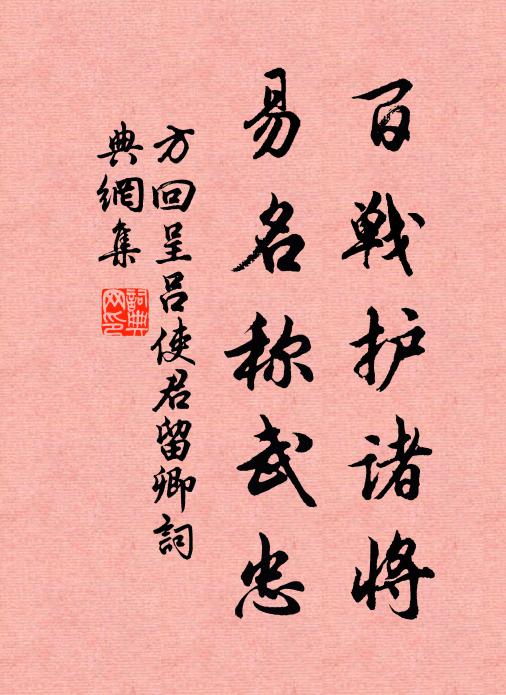 百戦护诸将
易名称武忠
方回呈吕使君留卿詞
典網集
詞典网印